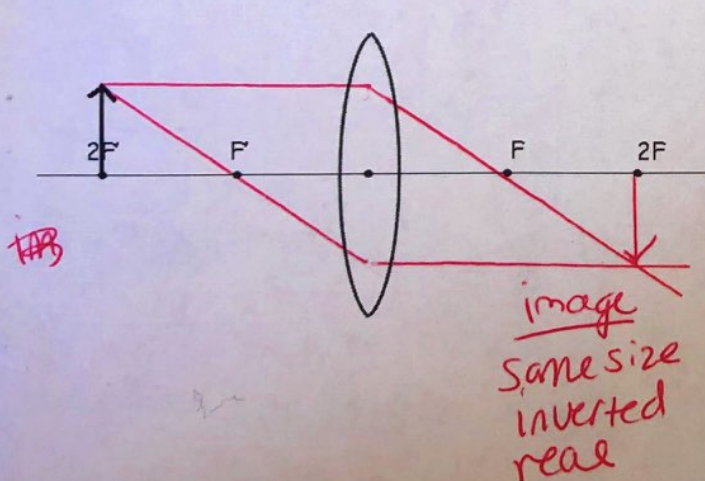 2F' F' F 2F
image
same size
inverted
real